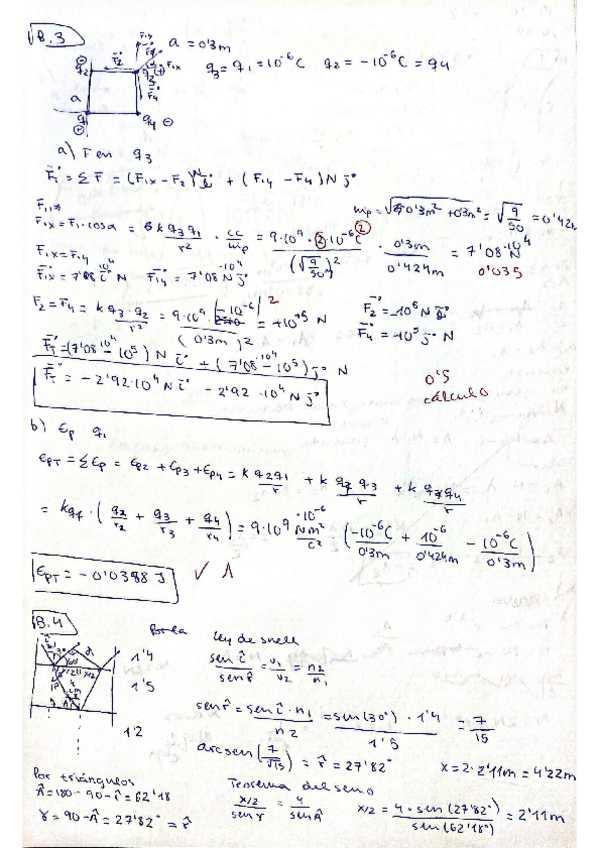 B.3
a = 0'3m
q3 = q1 = 10^-6 C q2 = -10^-6 C = q4
a) F en q3
F_T = ΣF = (F1x - F2) N i + (F1y - F4) N j
hip = √0'3m² + 0'3m² = √9/50 = 0'42m
F1x = F1 · cos α = k q3 q1 / r² · cc/hip = 9·10^9 · 2·10^-6 C / (√9/50)² · 0'3m / 0'424m = 7'08·10^4
0'035
F1x = F1y
F1x = 7'08·10^4 i N F1y = 7'08·10^4 N j
F2 = F4 = k q3·q2 / r² = 9·10^9 · |-10^-6|² / (0'3m)² = +10^5 N
F2 = -10^5 N i
F4 = -10^5 j N
F_T = (7'08·10^4 - 10^5) N i + (7'08·10^4 - 10^5) j N
F_T = -2'92·10^4 N i - 2'92·10^4 N j
0'5
cálculo
b) Ep q1
EpT = ΣEp = Ep2 + Ep3 + Ep4 = k q2q1/r + k q1 q3/r + k q1q4/r
= kq1 · (q2/r2 + q3/r3 + q4/r4) = 9·10^9 Nm²/C² ·10^-6 (-10^-6 C/0'3m + 10^-6/0'424m - 10^-6 C/0'3m)
EpT = -0'0388 J ✓ 1
B.4
Ley de snell
1'4
1'5
1'2
sen î / sen r̂ = v1/v2 = n2/n1
sen r̂ = sen î · n1 / n2 = sen(30°) · 1'4 / 1'5 = 7/15
arcsen(7/15) = r̂ = 27'82° x = 2·2'11m = 4'22m
Por triángulos
Â = 180 - 90 - r̂ = 62'18
γ = 90 - Â = 27'82° = r̂
Teorema del seno
x/2 / sen γ = 4 / sen Â
x/2 = 4 · sen(27'82°) / sen(62'18°) = 2'11m